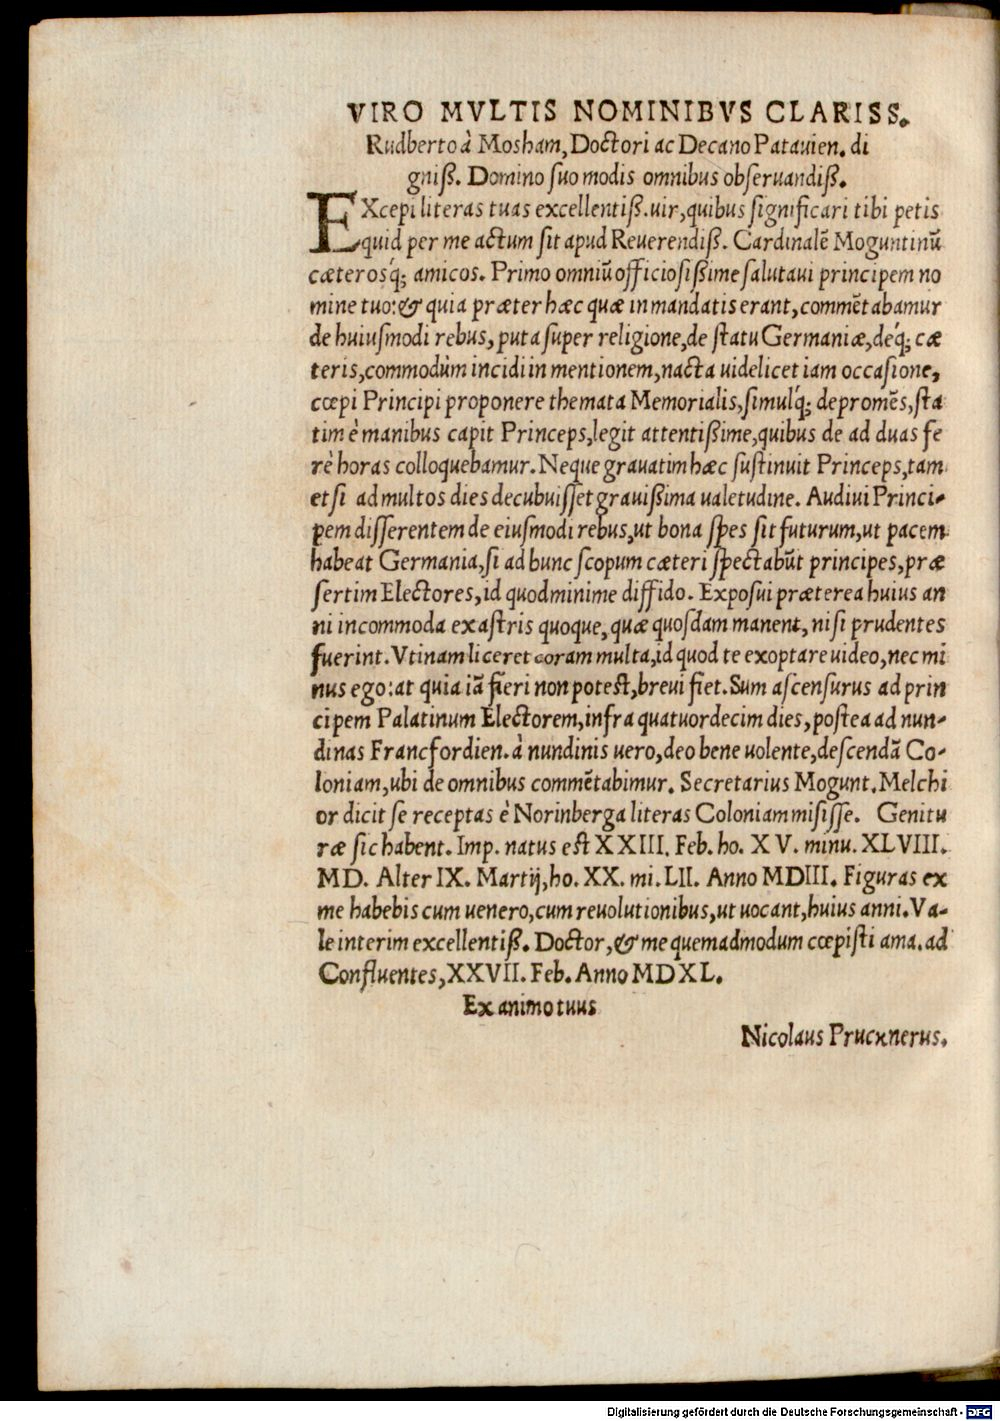 VIRO MVLTIS NOMINIBVS CLARISS.
Rudberto à Mosham, Doctori ac Decano Patauien. di
gniß. Domino suo modis omnibus obseruandiß.
EXcepi literas tuas excellentiß. uir, quibus significari tibi petis
quid per me actum sit apud Reuerendiß. Cardinalē Moguntinū
cæterosq́; amicos. Primo omniū officiosißime salutaui principem no
mine tuo: & quia præter hæc quæ in mandatis erant, commētabamur
de huiusmodi rebus, puta super religione, de statu Germaniæ, deq́; cæ
teris, commodùm incidi in mentionem, nacta uidelicet iam occasione,
cœpi Principi proponere themata Memorialis, simulq́; depromēs, sta
tim è manibus capit Princeps, legit attentißime, quibus de ad duas fe
rè horas colloquebamur. Neque grauatim hæc sustinuit Princeps, tam
etsi ad multos dies decubuisset grauißima ualetudine. Audiui Princi-
pem disserentem de eiusmodi rebus, ut bona spes sit futurum, ut pacem
habeat Germania, si ad hunc scopum cæteri spectabūt principes, præ
sertim Electores, id quod minime diffido. Exposui præterea huius an
ni incommoda ex astris quoque, quæ quosdam manent, nisi prudentes
fuerint. Vtinam liceret coram multa, id quod te exoptare uideo, nec mi
nus ego: at quia iā fieri non potest, breui fiet. Sum ascensurus ad prin
cipem Palatinum Electorem, infra quatuordecim dies, postea ad nun-
dinas Francfordien. à nundinis uero, deo bene uolente, descendā Co-
loniam, ubi de omnibus commētabimur. Secretarius Mogunt. Melchi
or dicit se receptas è Norinberga literas Coloniam misisse. Genitu
ræ sic habent. Imp. natus est XXIII. Feb. ho. XV. minu. XLVIII.
MD. Alter IX. Martij, ho. XX. mi. LII. Anno MDIII. Figuras ex
me habebis cum uenero, cum reuolutionibus, ut uocant, huius anni. Va-
le interim excellentiß. Doctor, & me quemadmodum cœpisti ama. ad
Confluentes, XXVII. Feb. Anno MDXL.
Ex animo tuus
Nicolaus Prucknerus.
Digitalisierung gefördert durch die Deutsche Forschungsgemeinschaft - DFG